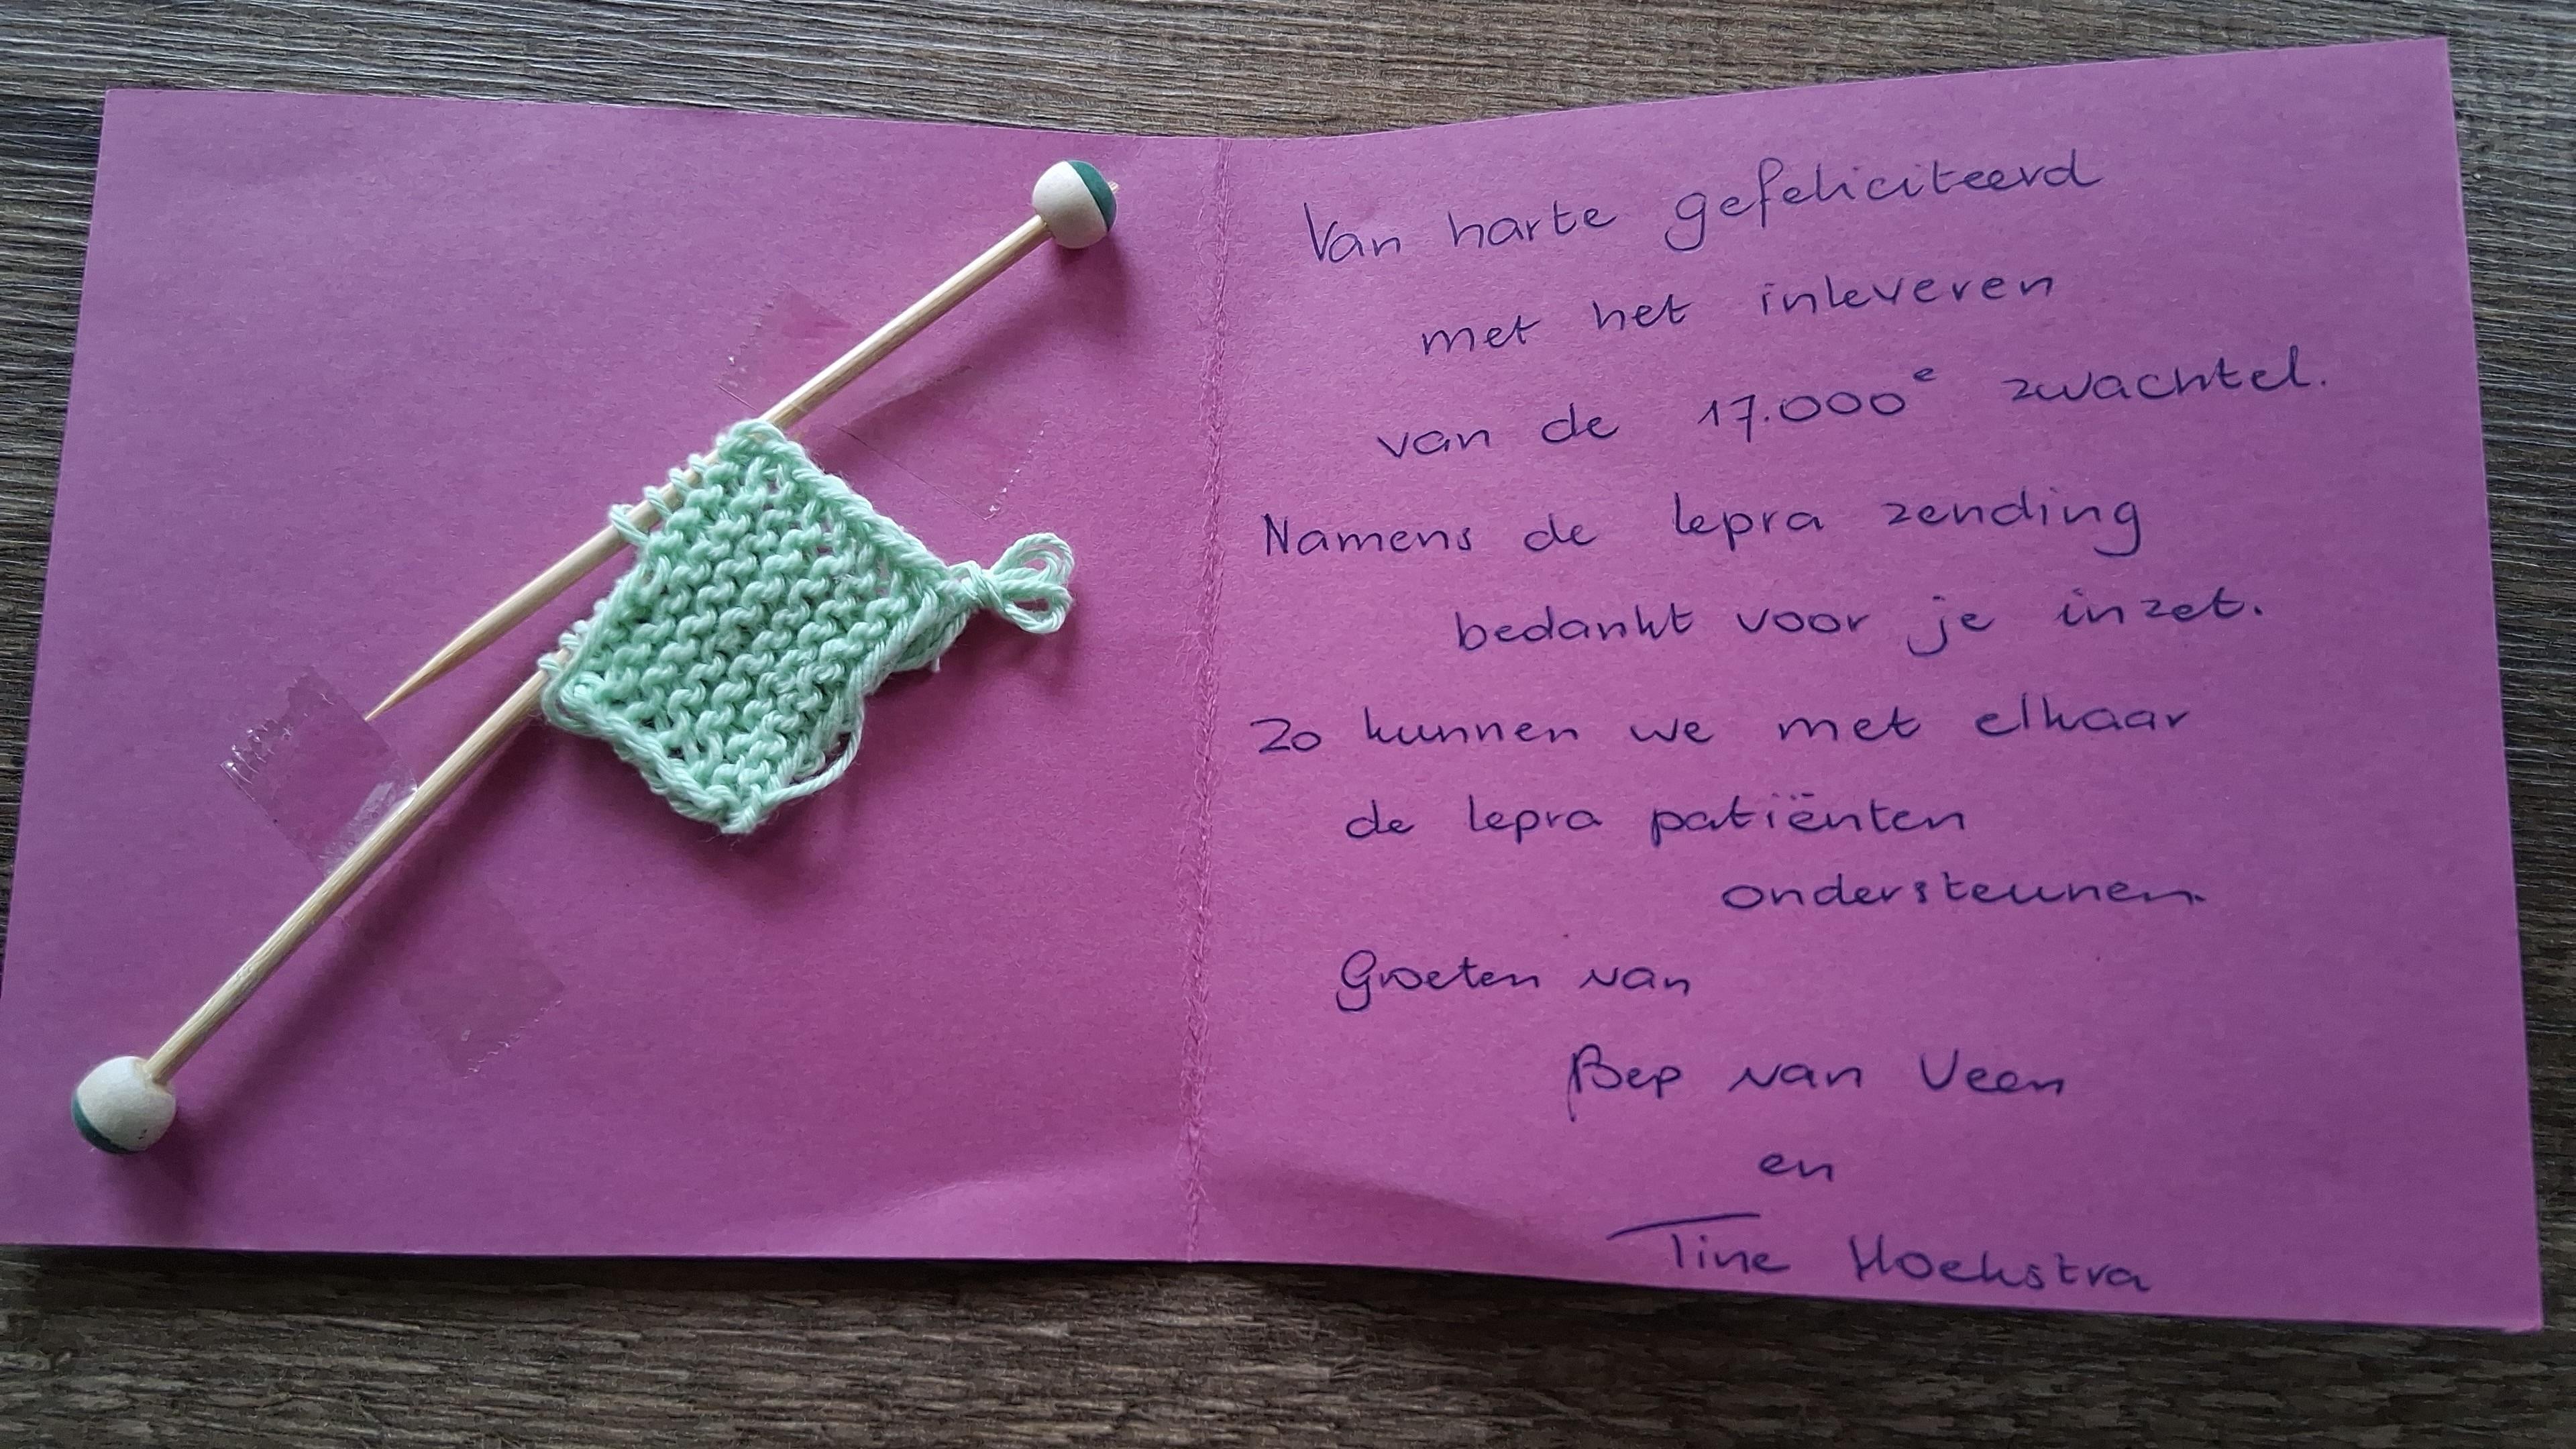 Van harte gefeliciteerd
met het inleveren
van de 17.000e zwachtel.
Namens de lepra zending
bedankt voor je inzet.
Zo kunnen we met elkaar
de lepra patiënten
ondersteunen.
Groeten van
Bep van Veen
en
Tine Hoekstra